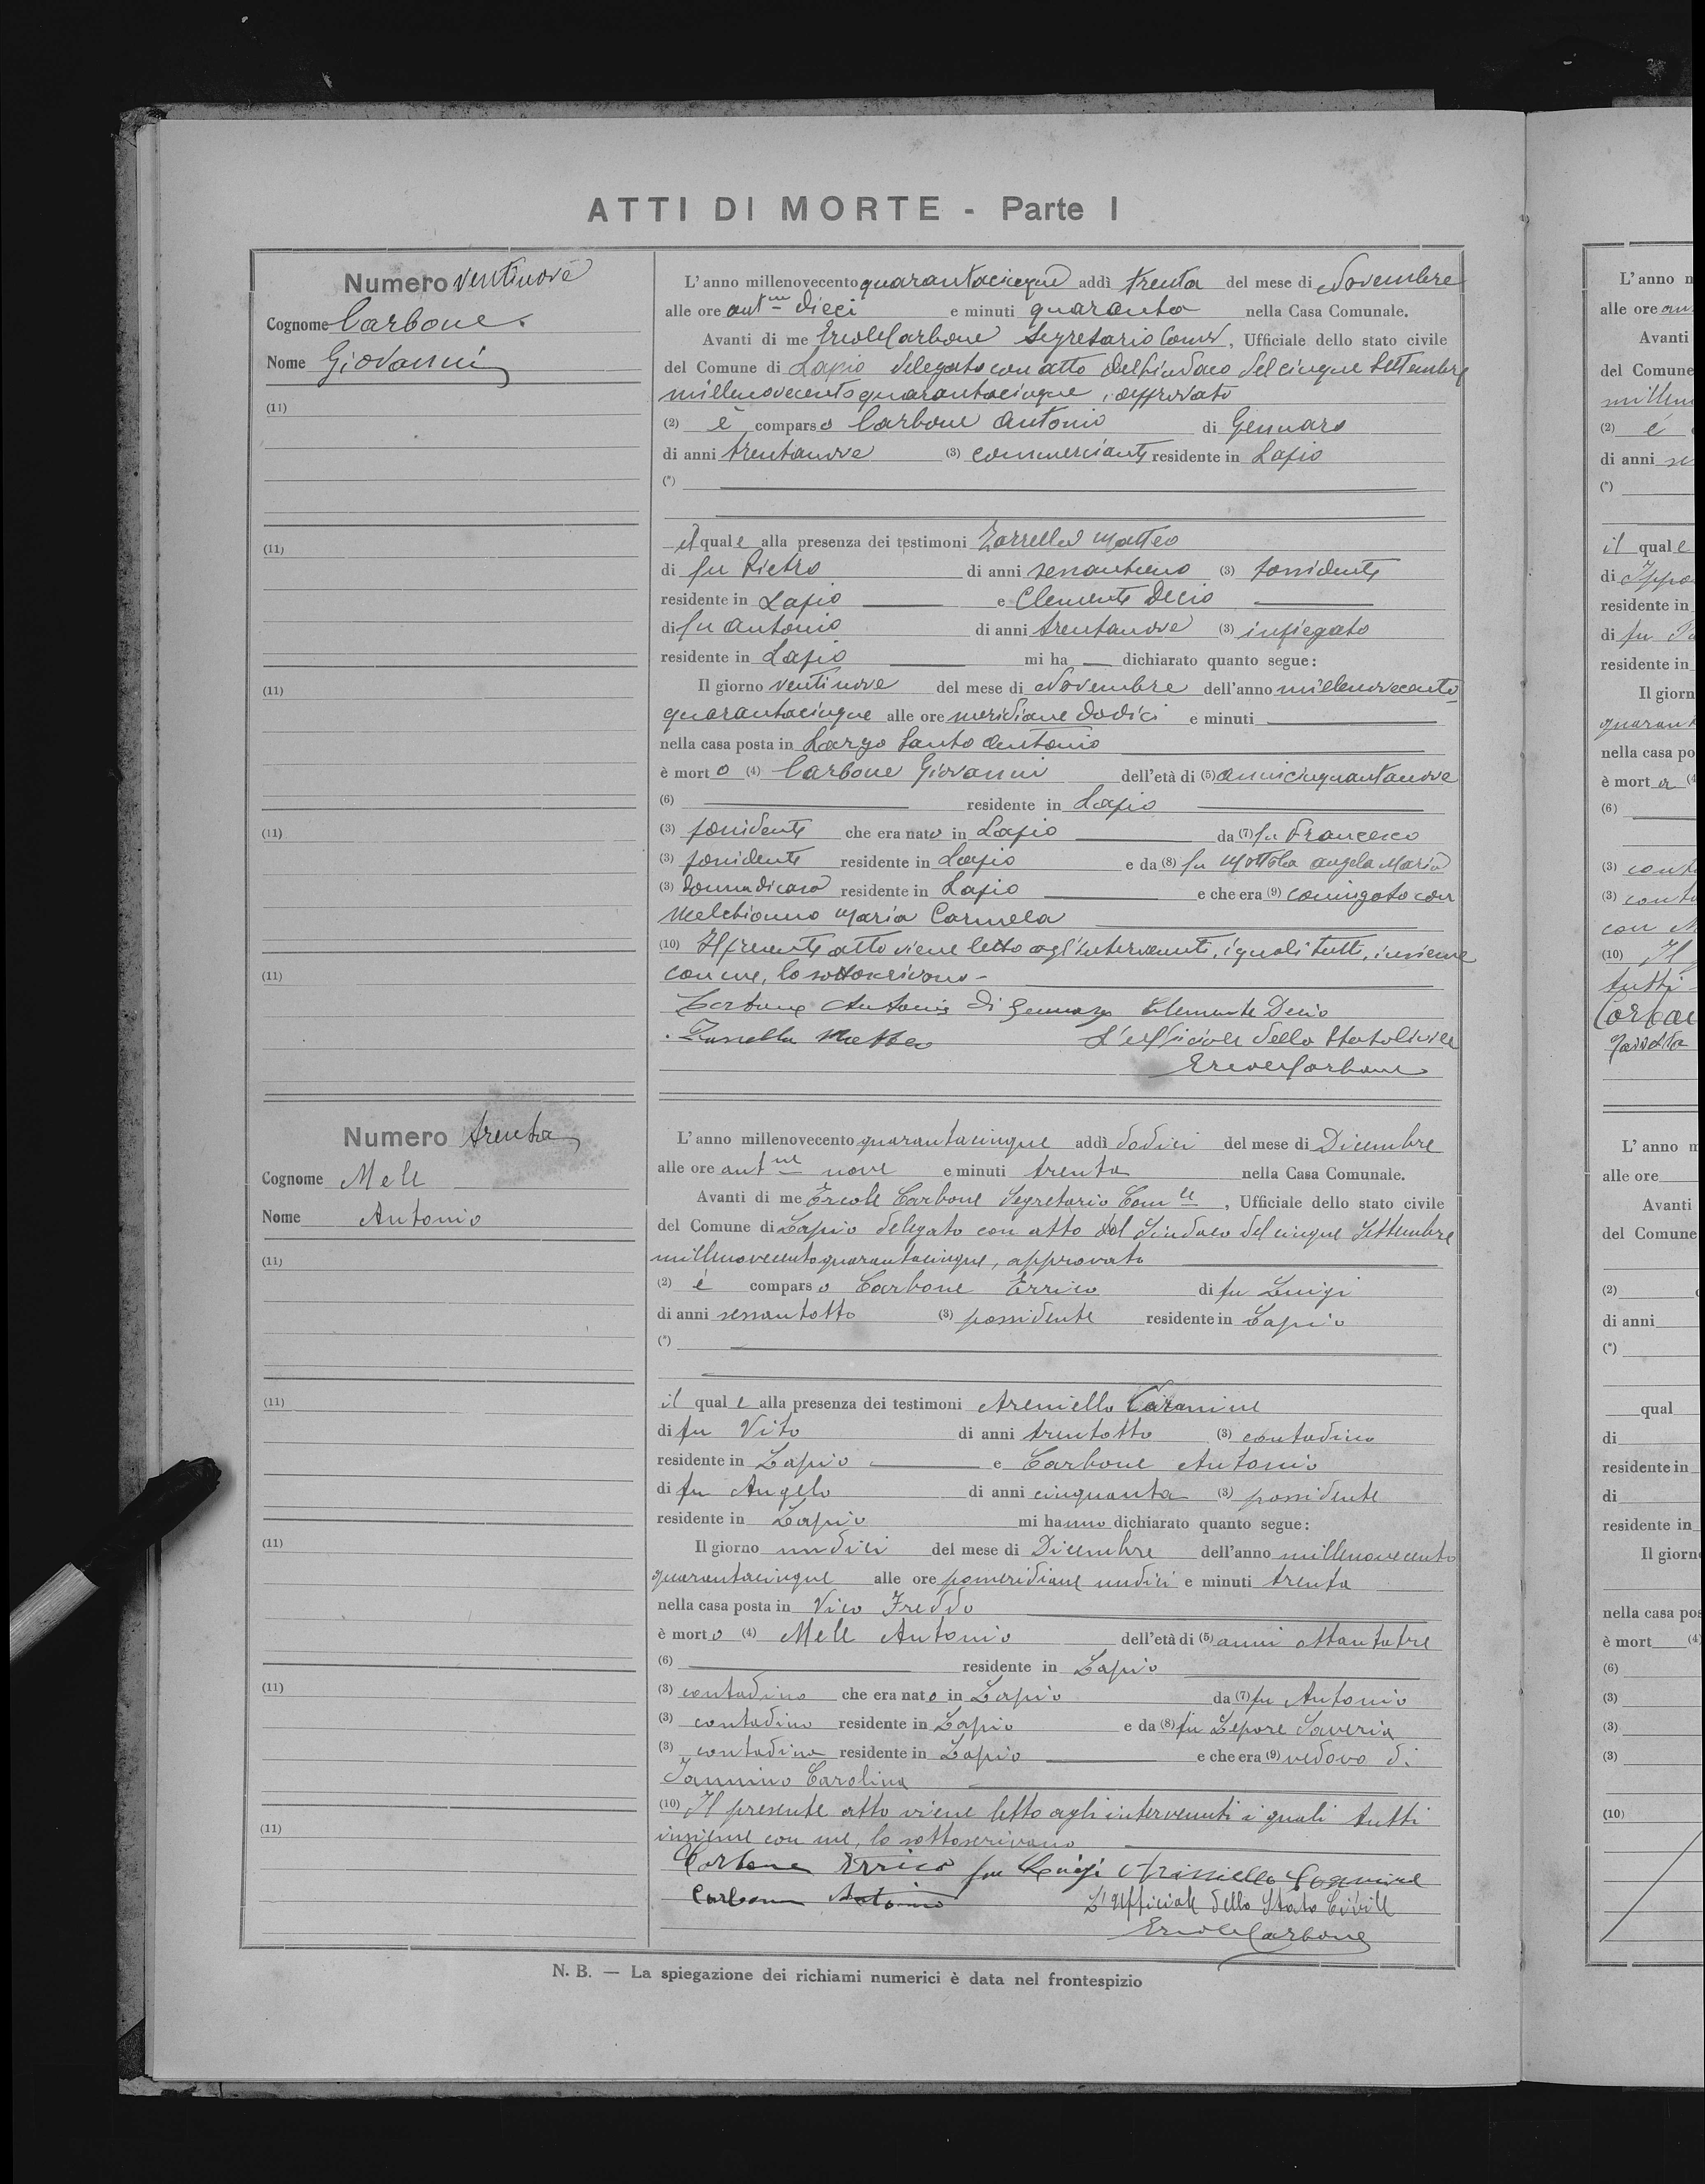 ATTI DI MORTE - Parte I
Numero ventinove
Cognome Carbone.
Nome Giovanni
(11)
(11)
(11)
(11)
(11)
L'anno millenovecento quarantacinque addì trenta del mese di Novembre
alle ore antne dieci e minuti quaranta nella Casa Comunale.
Avanti di me Ercole Carbone Segretario Comle, Ufficiale dello stato civile
del Comune di Lapio delegato con atto del Sindaco del cinque Settembre
millenovecentoquarantacinque, approvato
(2) è comparso Carbone Antonio di Gennaro
di anni trentanove (3) commerciante residente in Lapio
(*)
il quale alla presenza dei testimoni Zarrella Matteo
di fu Pietro di anni sessantuno (3) possidente
residente in Lapio e Clemente Decio
di fu Antonio di anni trentanove (3) impiegato
residente in Lapio mi ha dichiarato quanto segue:
Il giorno ventinove del mese di Novembre dell'anno millenovecento
quarantacinque alle ore meridiane dodici e minuti
nella casa posta in Largo Santo Antonio
è morto (4) Carbone Giovanni dell'età di (5) anni cinquantanove
(6) residente in Lapio
(3) possidente che era nato in Lapio da (7) fu Francesco
(3) possidente residente in Lapio e da (8) fu Mottola Angela Maria
(3) donna di casa residente in Lapio e che era (9) coniugato con
Melchionno Maria Carmela
(10) Il presente atto viene letto agl'intervenuti, i quali tutti, insieme
con me, lo sottoscrivono -
Carbone Antonio di Gennaro Clemente Decio
Zarrella Matteo L'Ufficiale dello Stato Civile
Ercole Carbone
Numero trenta
Cognome Mele
Nome Antonio
(11)
(11)
(11)
(11)
(11)
L'anno millenovecento quarantacinque addì dodici del mese di Dicembre
alle ore antne nove e minuti trenta nella Casa Comunale.
Avanti di me Ercole Carbone Segretario Comle, Ufficiale dello stato civile
del Comune di Lapio delegato con atto del Sindaco del cinque Settembre
millenovecentoquarantacinque, approvato
(2) è comparso Carbone Errico di fu Luigi
di anni sessantotto (3) possidente residente in Lapio
(*)
il quale alla presenza dei testimoni Areniello Carmine
di fu Vito di anni trentotto (3) contadino
residente in Lapio e Carbone Antonio
di fu Angelo di anni cinquanta (3) possidente
residente in Lapio mi hanno dichiarato quanto segue:
Il giorno undici del mese di Dicembre dell'anno millenovecento
quarantacinque alle ore pomeridiane undici e minuti trenta
nella casa posta in Vico Freddo
è morto (4) Mele Antonio dell'età di (5) anni ottantatre
(6) residente in Lapio
(3) contadino che era nato in Lapio da (7) fu Antonio
(3) contadino residente in Lapio e da (8) fu Lepore Saveria
(3) contadina residente in Lapio e che era (9) vedovo di
Iannino Carolina
(10) Il presente atto viene letto agli intervenuti i quali tutti
insieme con me, lo sottoscrivano
Carbone Errico fu Luigi Carmine
Carbone Antonio L'Ufficiale dello Stato Civile
Ercole Carbone
N. B. — La spiegazione dei richiami numerici è data nel frontespizio
L'anno
alle ore
Avanti
del Comune
(2) è
di anni
(*)
il quale
di
residente in
di fu
residente in
Il giorn
nella casa po
è mort a (4
(6)
(3)
(3)
con
(10) Il
tutti
L'anno
alle ore
Avanti
del Comune
(2)
di anni
(*)
qual
di
residente in
di
residente in
Il giorn
nella casa pos
è mort (4
(6)
(3)
(3)
(3)
(10)